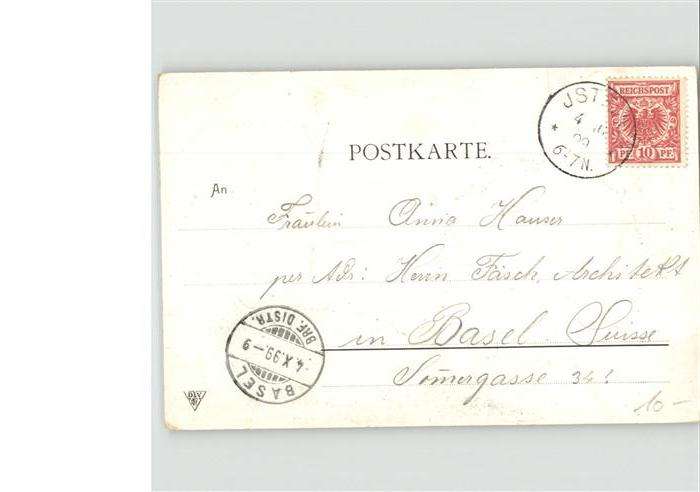 REICHSPOST
10 PF
PF
JST
4
99
6-7N.
POSTKARTE.
An
Fräulein Anna Hauser
per Adr: Herrn Fäsch, Architekt
in Basel Suisse
Sommergasse 34!
BASEL
4.X.99-9
BRF. DISTR.
10-